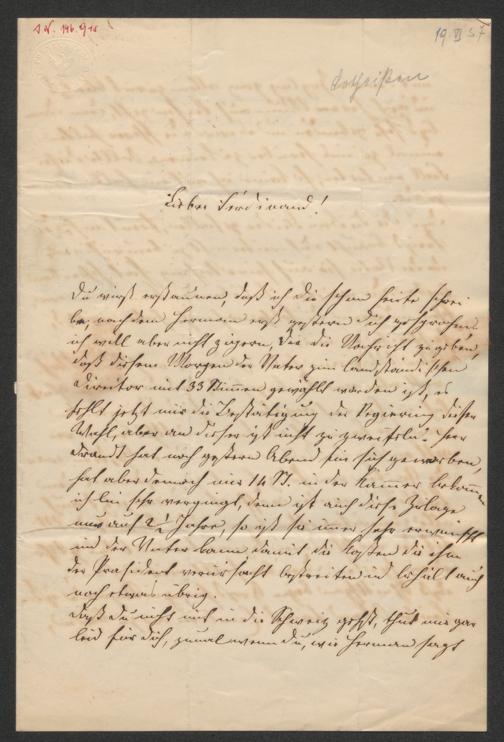 19 VI 57
Lotheißen
Lieber Ferdinand!
Du wirst erstaunen, daß ich Dir schon heute schrei
be, nachdem Herman erst gestern Dich gesprochen.
ich will aber nicht zögern, Dir die Nachricht zu geben,
daß diesen Morgen der Vater zum landständischen
Director mit 33 Stimmen gewählt worden ist, es
fehlt jetzt nur die Bestätigung der Regierung dieser
Wahl, aber an dieser ist nicht zu zweifeln. Herr
hat noch gestern Abend für sich geworben,
hat aber dennoch nur 14 St. in der Kamer bekomen
ich bin sehr vergnügt, denn ist auch diese Zulage
nur auf 2 1/2 Jahre, so ist sie imer sehr erwünscht
und der Vater kann damit die Kosten die ihm
der Präsident verursacht bestreiten und behält auch
noch etwas übrig.
Daß Du nicht mit in die Schweiz gehst, thut mir gar
leid für Dich, zumal wenn Du, wie Herman sagt